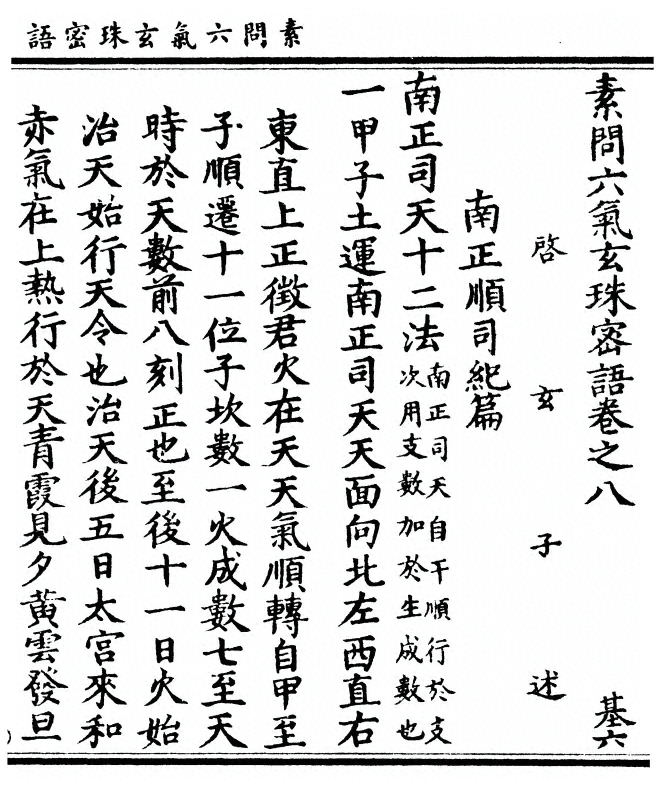 素問六氣玄珠密語
素問六氣玄珠密語卷之八 基六
啓玄子述
南正順司紀篇
南正司天十二法南正司天自干順行於支次用支數加於生成數也
一甲子土運南正司天天面向北左西直右
東直上正徵君火在天天氣順轉自甲至
子順遷十一位子坎數一火成數七至天
時於天數前八刻正也至後十一日火始
治天始行天令也治天後五日太宮來和
赤氣在上熱行於天青霞見夕黃雲發旦